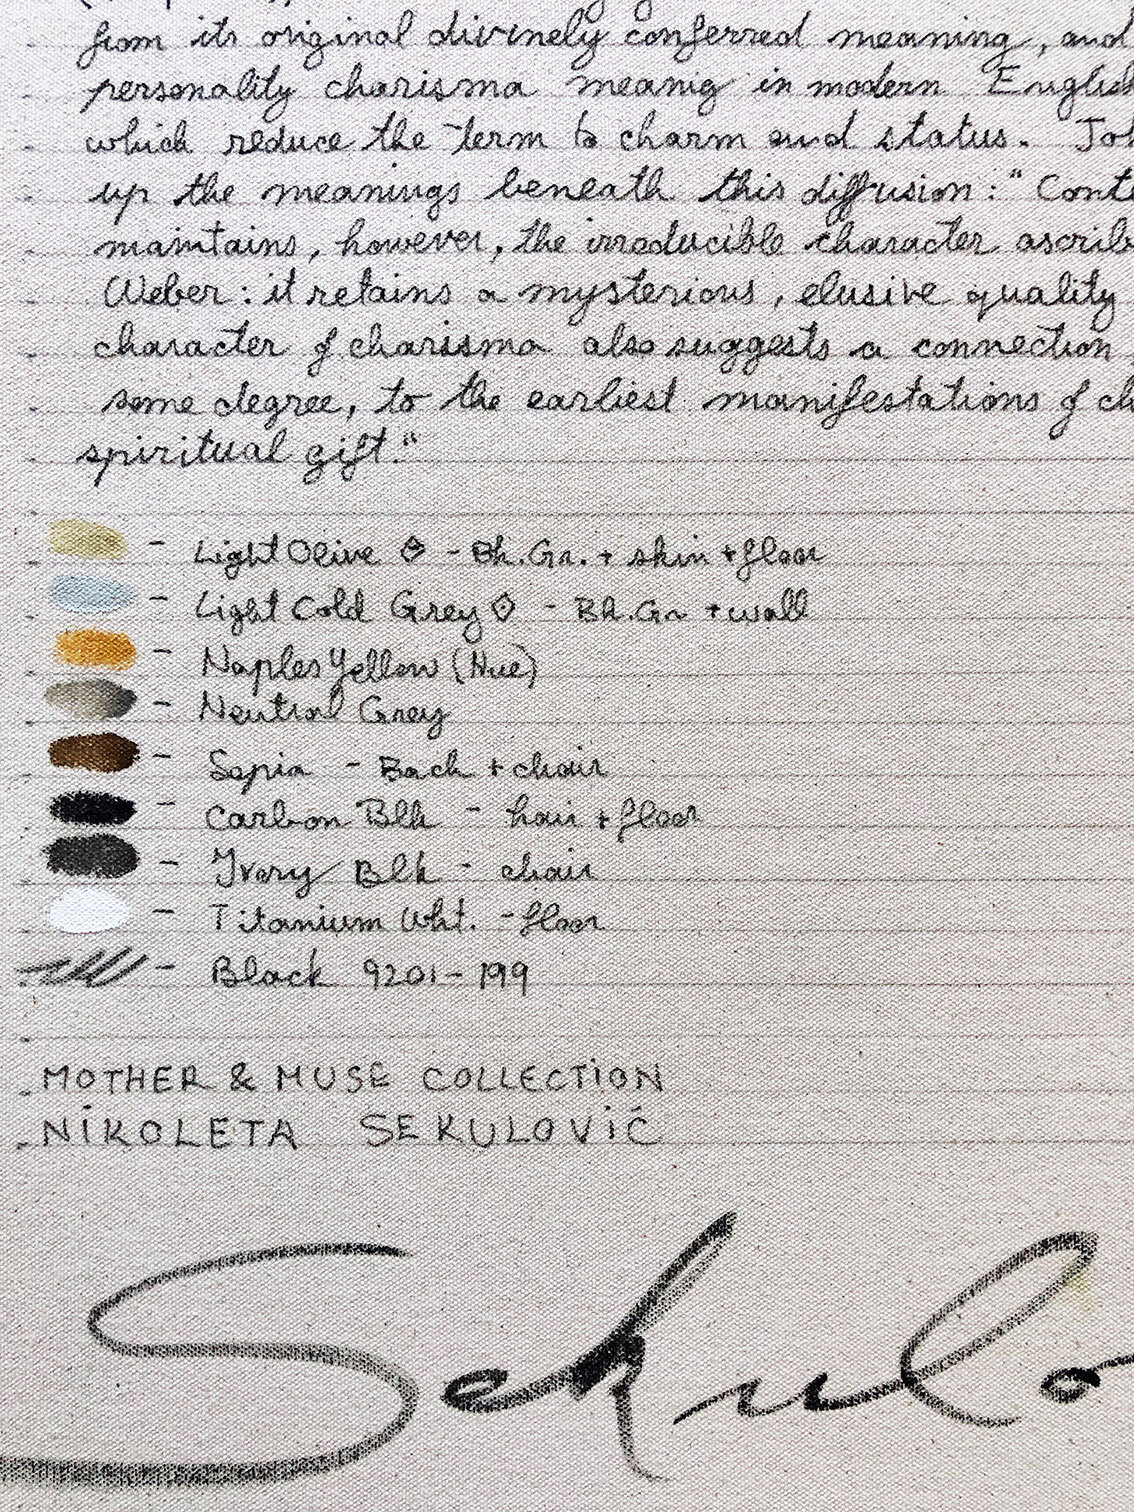 from its original divinely conferred meaning, and
personality charisma meanig in modern English
which reduce the term to charm and status. Joh
up the meanings beneath this diffusion: "Conte
maintains, however, the irreducible character ascrib
Weber: it retains a mysterious, elusive quality
character of charisma also suggests a connection
some degree, to the earliest manifestations of ch
spiritual gift."
- Light Olive - Bk.Gr. + skin + floor
- Light Cold Grey - Bk.Gr + wall
- Naples Yellow (Hue)
- Neutral Grey
- Sepia - Back + chair
- Carbon Blk - hair + floor
- Ivory Blk - chair
- Titanium Wht. - floor
- Black 9201-199
MOTHER & MUSE COLLECTION
NIKOLETA SEKULOVIĆ
Sekulo